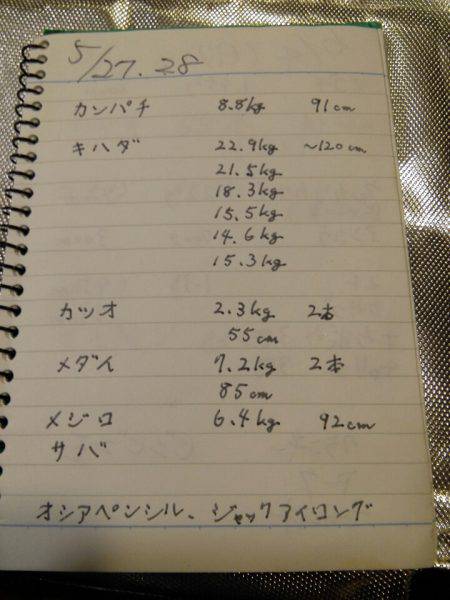 5/27.28
カンパチ 8.8kg 91cm
キハダ 22.9kg ~120cm
21.5kg
18.3kg
15.5kg
14.6kg
15.3kg
カツオ 2.3kg 2本
55cm
メダイ 7.2kg 2本
85cm
メジロ 6.4kg 92cm
サバ
オシアペンシル、ジャックアイロング